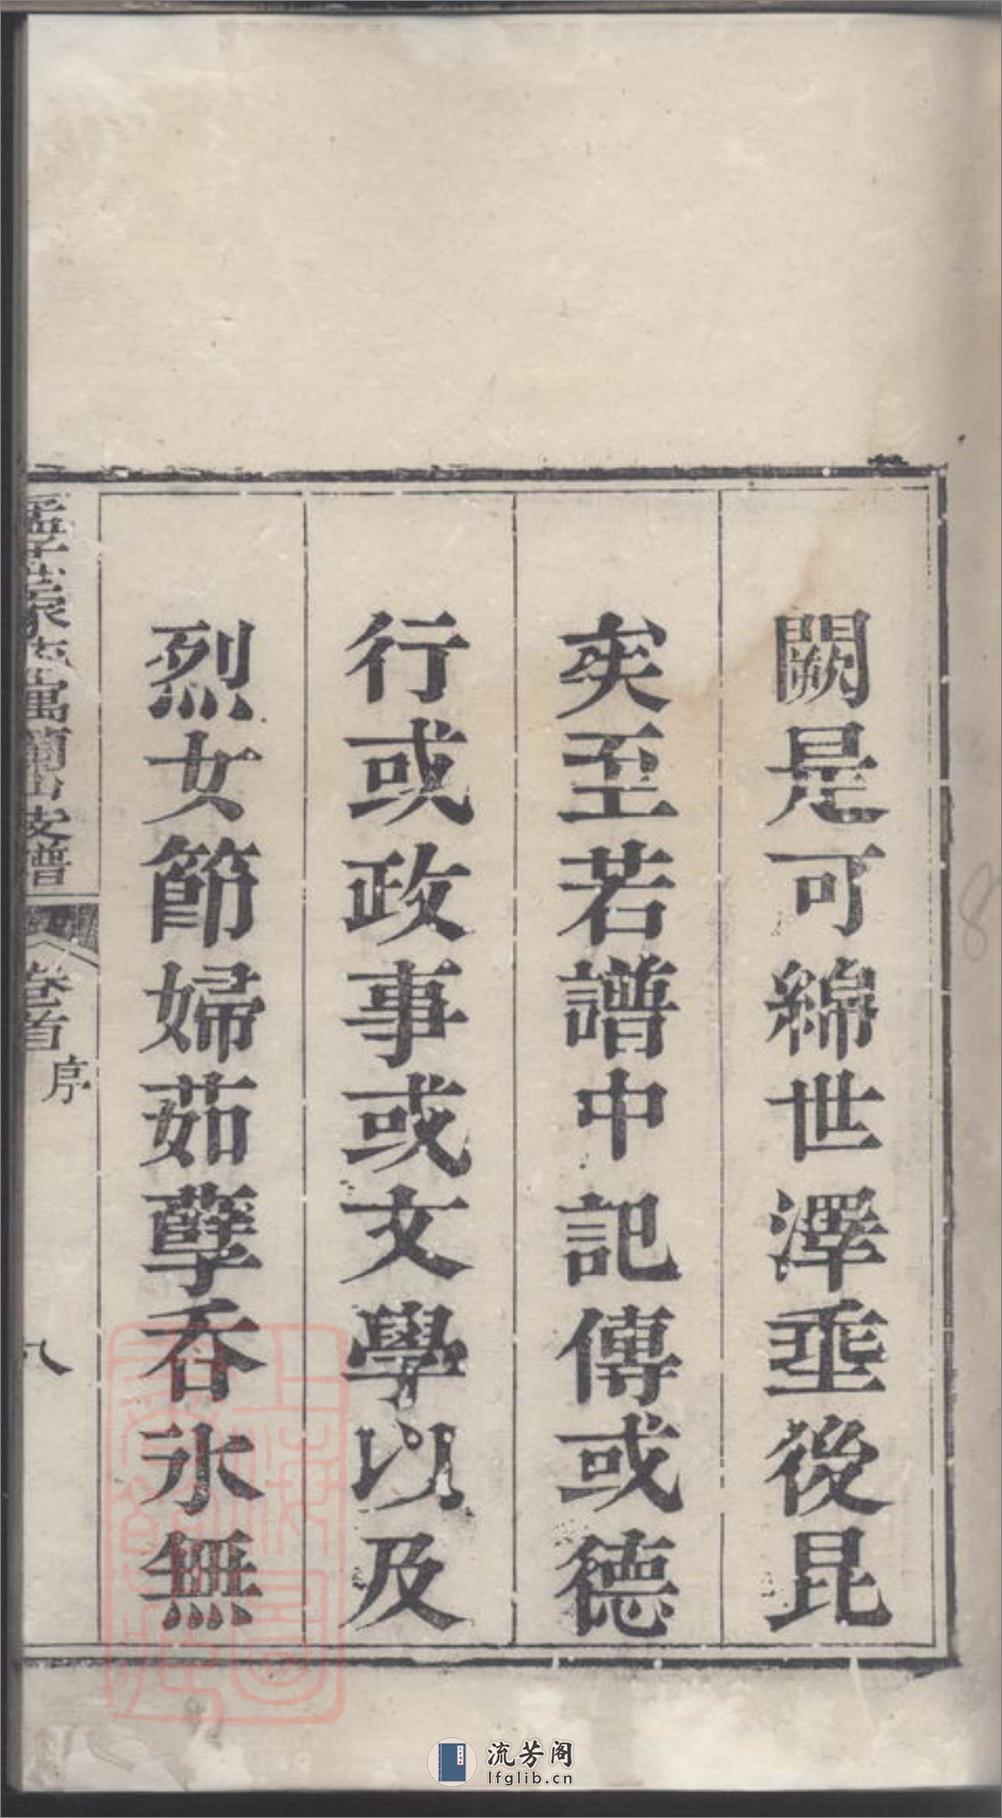 闕是可綿世澤垂後昆
矣至若譜中記傳或德
行或政事或文學以及
烈女節婦茹孽吞氷無
支譜
卷首
序
八
上海圖書館藏
流芳阁
lfglib.cn
8